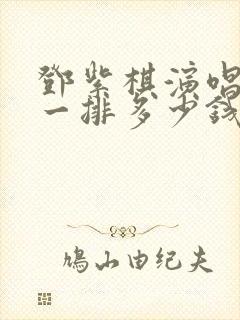 鄧紫棋演唱
一排多少錢
鳩山由纪夫